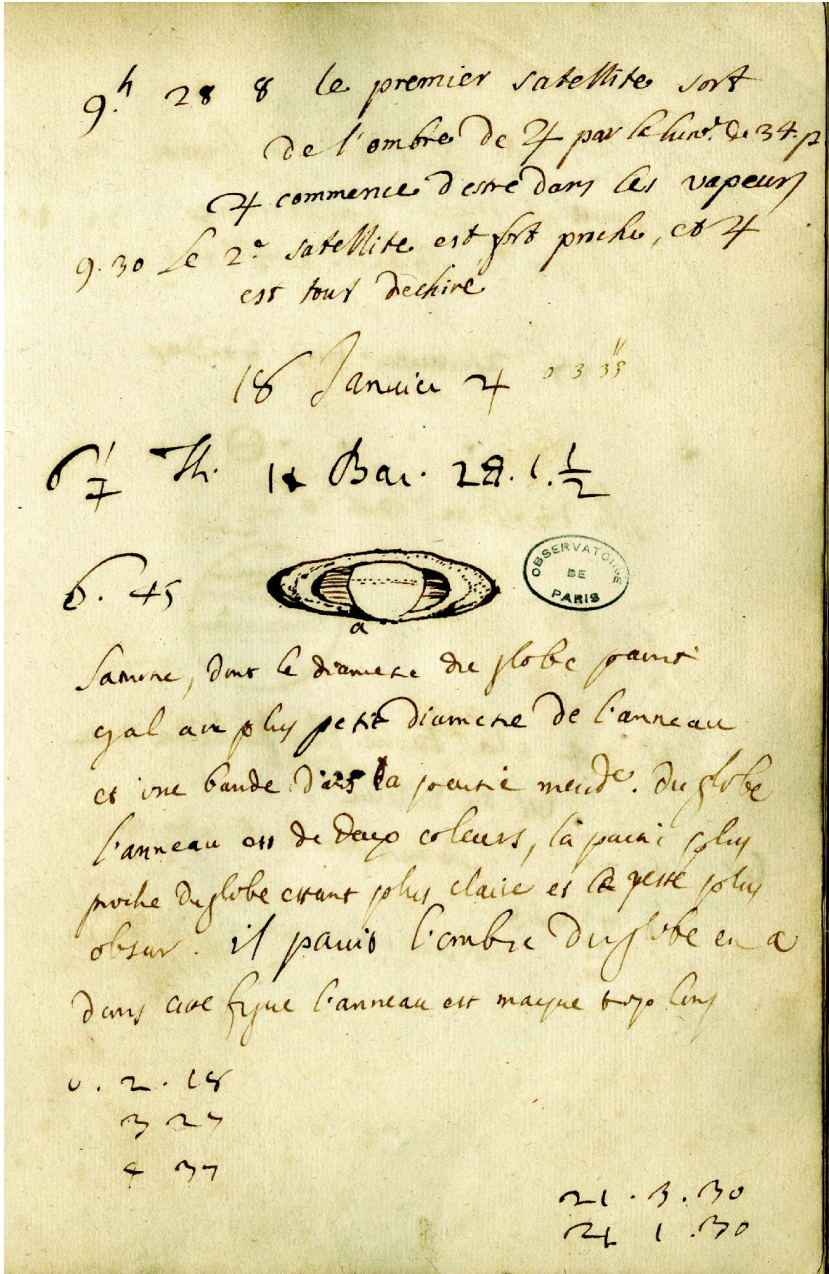 9.h 28 8 le premier satellite sort
de l'ombre de ♃ par la lunet. de 34. p
♃ commence d'estre dans les vapeurs
9. 30 Le 2.e satellite est fort proche, et ♃
est tout dechiré
18 Janvier ♃ 0 3 35"
6 Th. Bar. 28. 1. 1/2
6. 45
OBSERVATOIRE
DE
PARIS
a
Saturne, dont le diametre du globe paroist
egal au plus petit diametre de l'anneau
et une bande dans la partie merid. du globe
l'anneau est de deux coleurs, la partie plus
proche du globe estant plus claire et le reste plus
obscur. il parois l'ombre du globe en a
dans cete figure l'anneau est marque trop long
0. 2. 18
3 27
4 37
21. 3. 30
21 1. 30